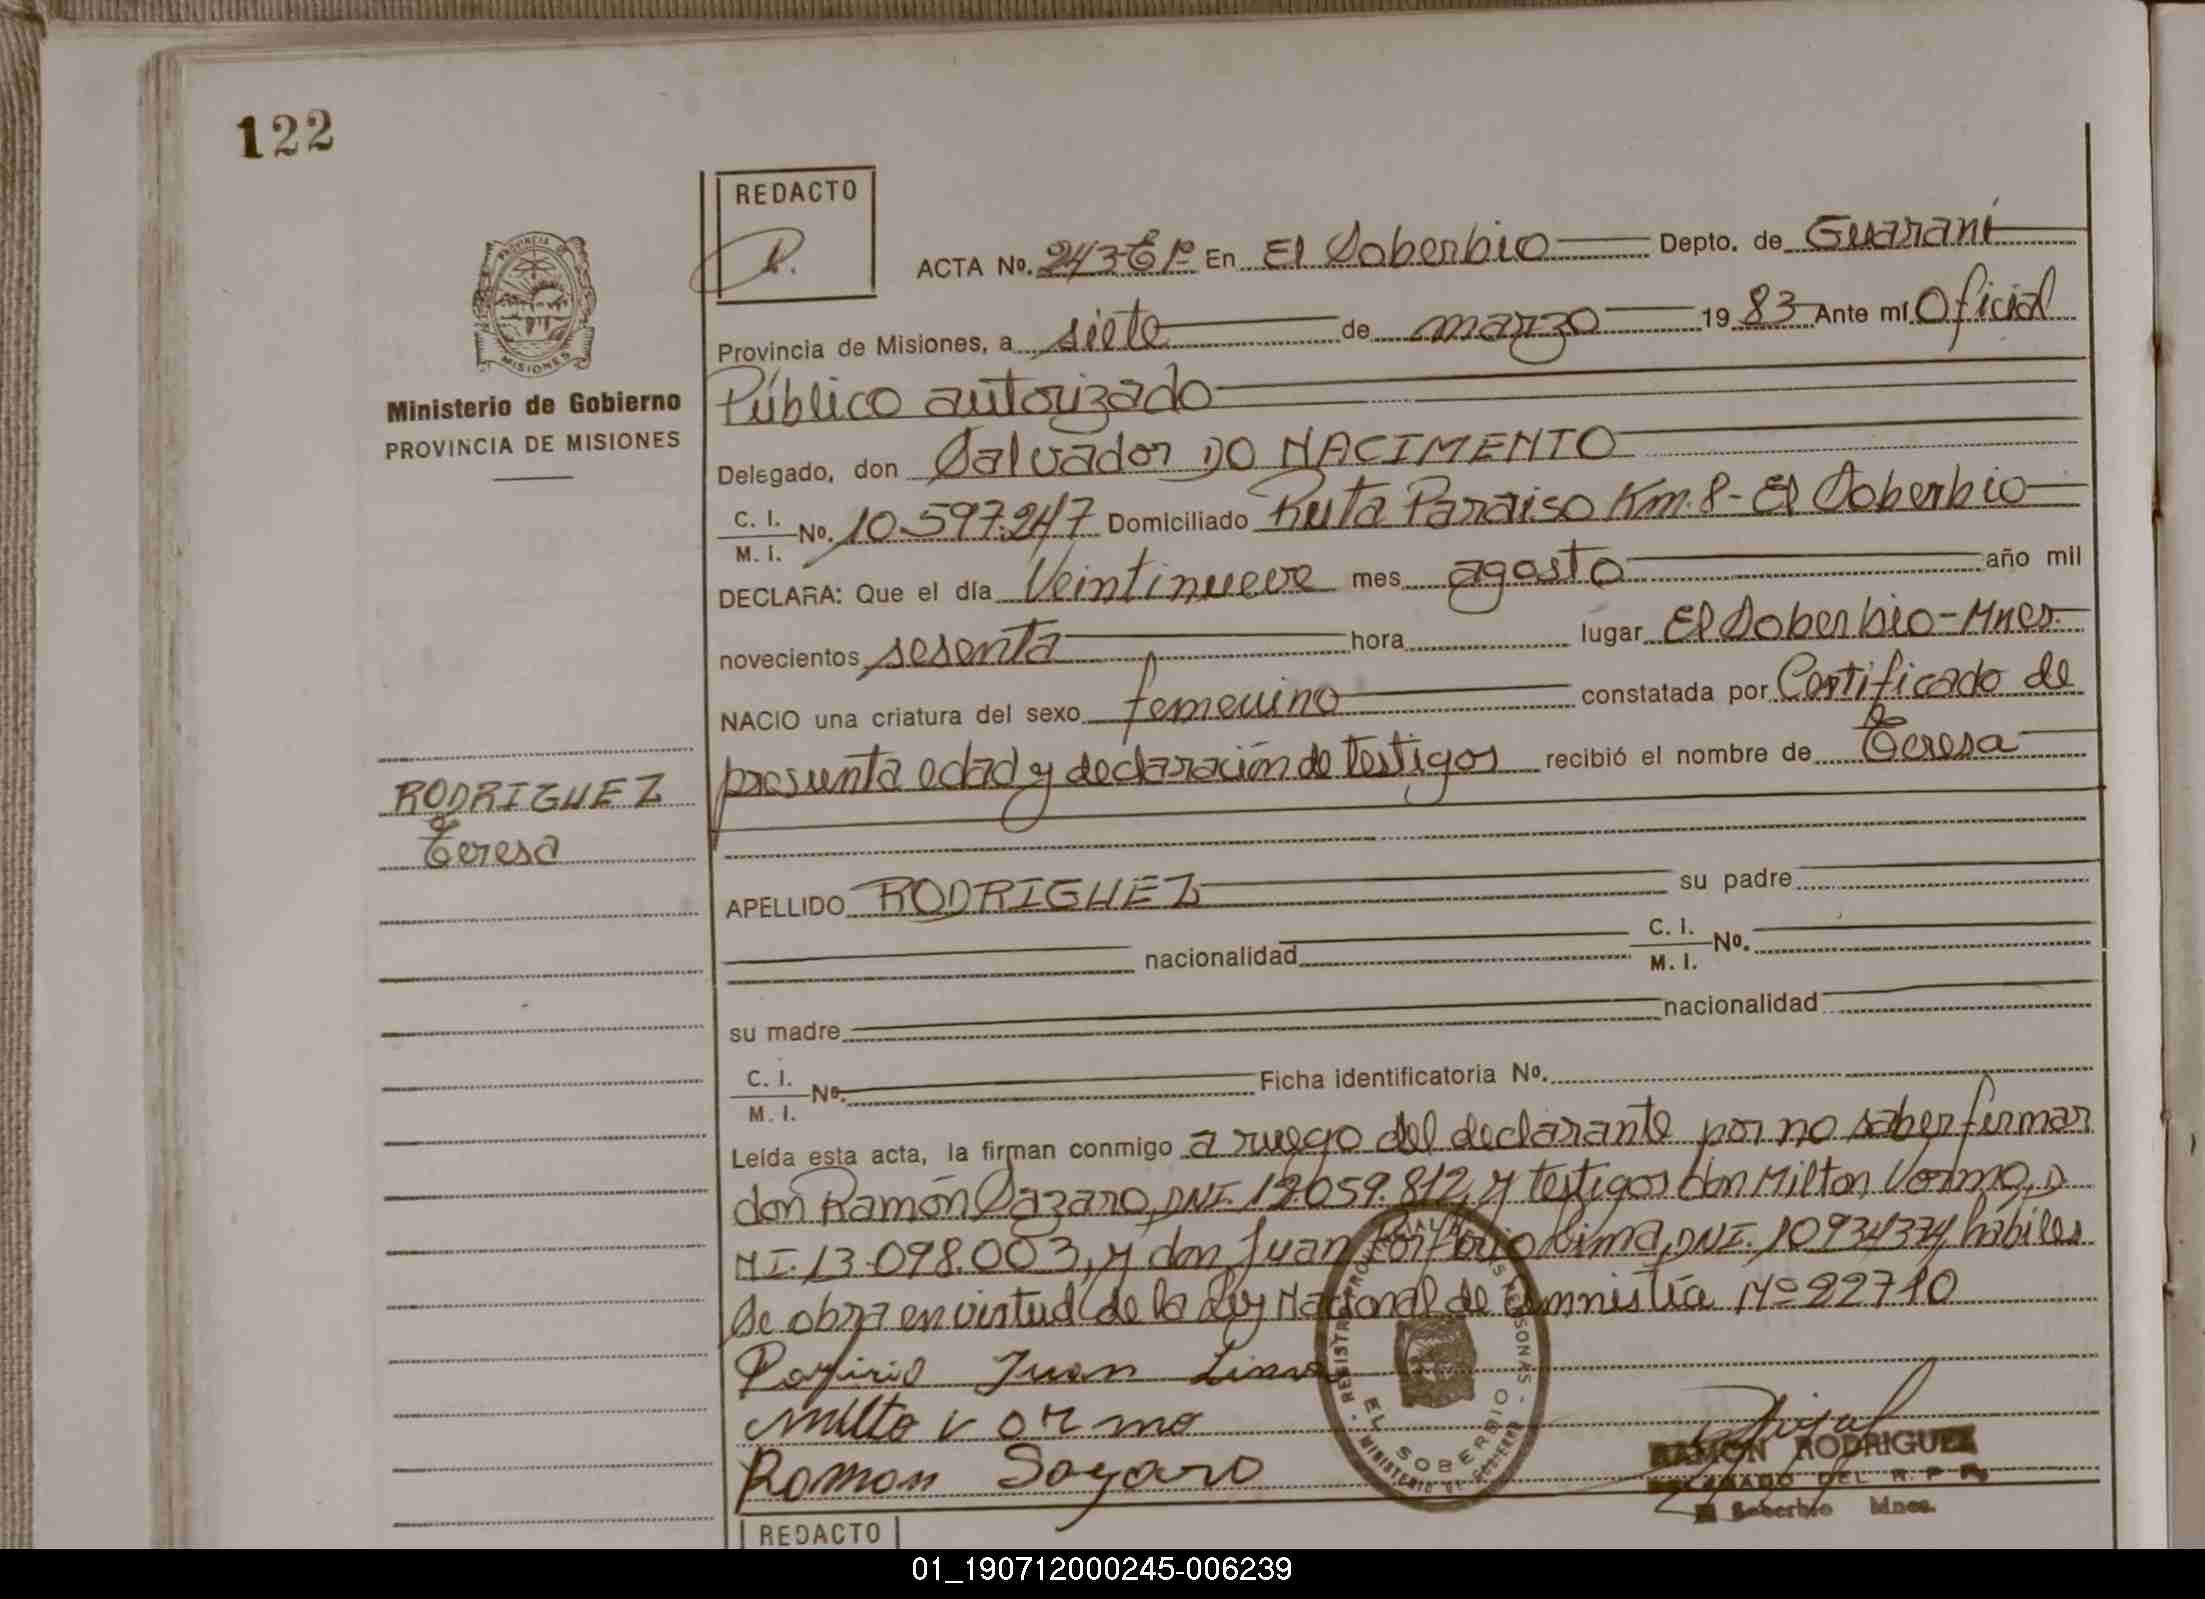 122
REDACTO
ACTA Nº. 243-Eº1º En El Soberbio Depto. de Guaraní
Provincia de Misiones, a siete de marzo 1983 Ante mí Oficial
Público autorizado
PROVINCIA DE
MISIONES
Ministerio de Gobierno
PROVINCIA DE MISIONES
Delegado, don Salvador DO NACIMENTO
C. I.
M. I. Nº. 10.597.247 Domiciliado Ruta Paraiso Km. 8- El Soberbio
DECLARA: Que el día Veintinueve mes agosto año mil
novecientos sesenta hora lugar El Soberbio-Mnes.
NACIO una criatura del sexo femenino constatada por Certificado de
presunta edad y declaración de testigos recibió el nombre de Teresa
RODRIGUEZ
Teresa
APELLIDO RODRIGUEZ su padre
nacionalidad C. I.
M. I. Nº.
su madre nacionalidad
C. I.
M. I. Nº. Ficha identificatoria Nº.
Leída esta acta, la firman conmigo a ruego del declarante por no saber firmar
don Ramón Sazaro, DNI. 12.059.812, y testigos don Milton Vormo, D
NI. 13.098.003, y don Juan Porfirio Lima, DNI. 10934374, hábiles
Se obra en virtud de la Ley Nacional de amnistía Nº 22710
Porfirio Juan Lima
Milto vormo
Ramon Sozaro
REGISTRO PROVINCIAL DE LAS PERSONAS
EL SOBERBIO
MINISTERIO DE GOBIERNO
RAMON RODRIGUEZ
DELEGADO DEL R. P. P.
El Soberbio Mnes.
REDACTO
01_190712000245-006239